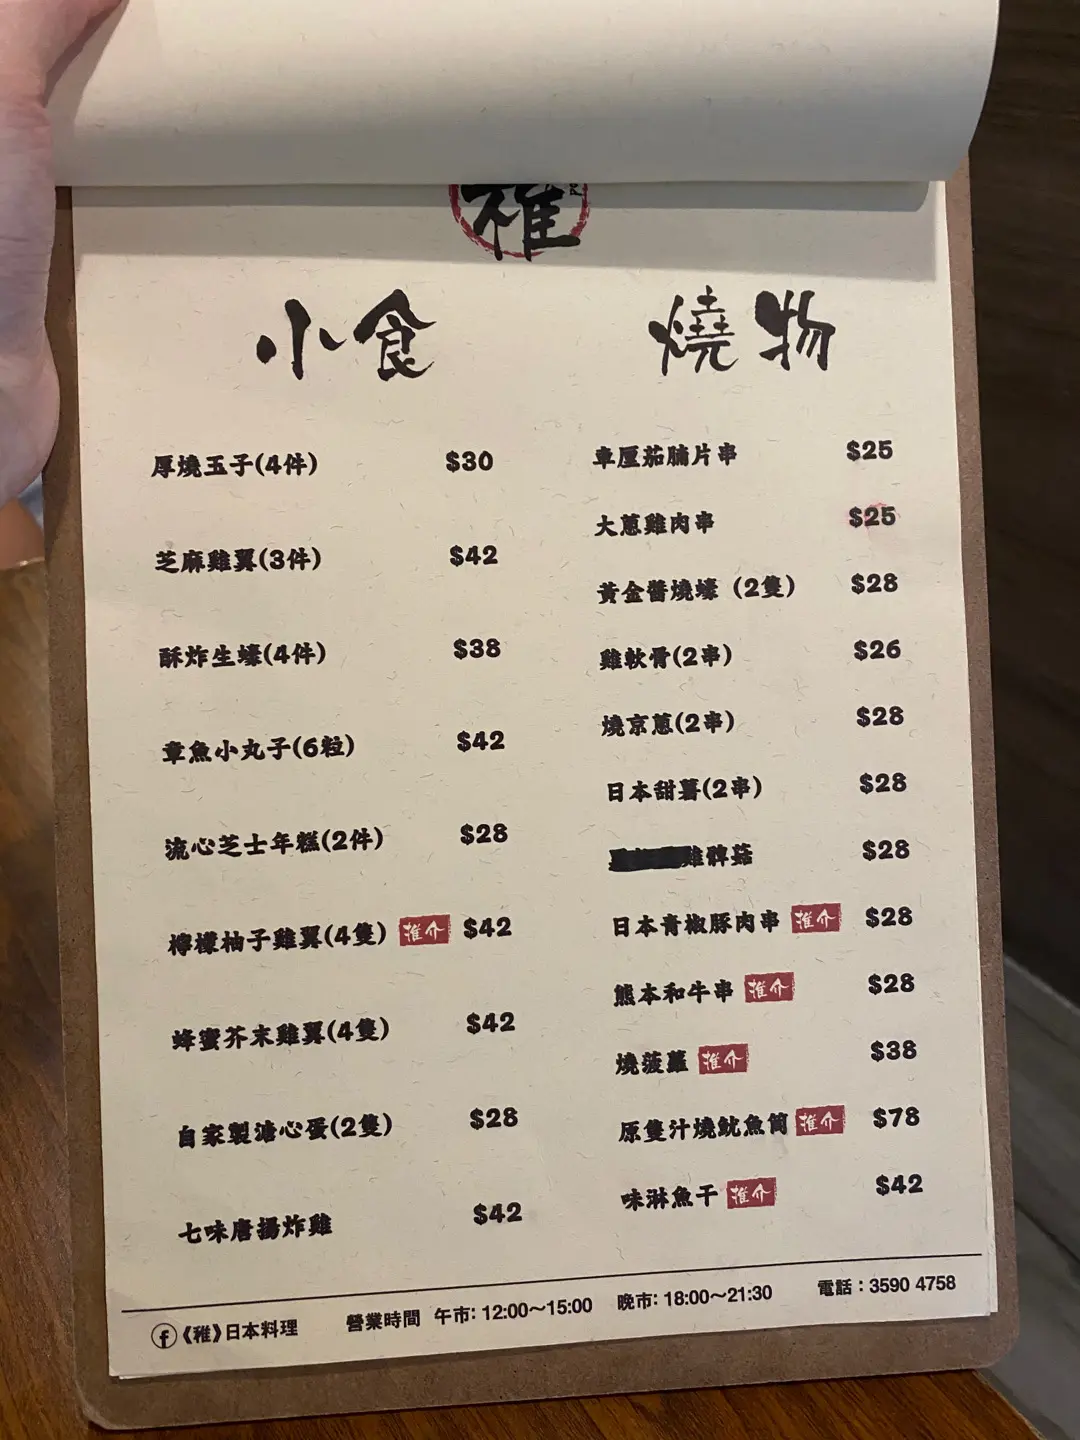 稚
小食
厚燒玉子(4件) $30
芝麻雞翼(3件) $42
酥炸生蠔(4件) $38
章魚小丸子(6粒) $42
流心芝士年糕(2件) $28
檸檬柚子雞翼(4隻) 推介 $42
蜂蜜芥末雞翼(4隻) $42
自家製溏心蛋(2隻) $28
七味唐揚炸雞 $42
燒物
車厘茄腩片串 $25
大蔥雞肉串 $25
黃金醬燒蠔 (2隻) $28
雞軟骨(2串) $26
燒京蔥(2串) $28
日本甜薯(2串) $28
雞髀菇 $28
日本青椒豚肉串 推介 $28
熊本和牛串 推介 $28
燒菠蘿 推介 $38
原隻汁燒魷魚筒 推介 $78
味淋魚干 推介 $42
f《稚》日本料理 營業時間 午市: 12:00～15:00 晚市: 18:00～21:30 電話：3590 4758